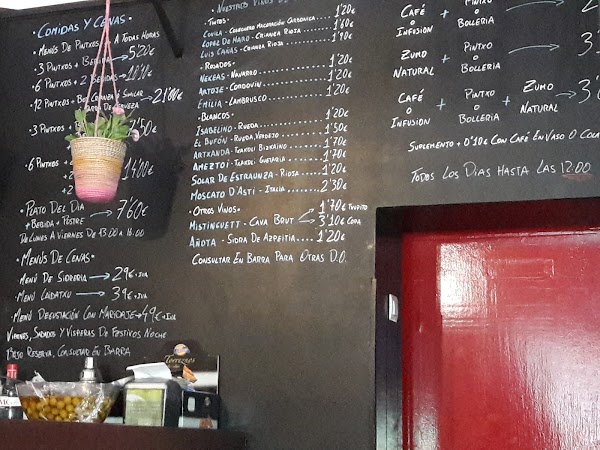 Comidas Y Cenas
• Menús De Pintxos A Todas Horas
• 3 Pintxos + Bebida → 5'20€
• 6 Pintxos + 2 Bebidas
• 12 Pintxos +
21'00€
• 3 Pintxos
'50€
• 6 Pintxos
+ 2
+ 2
14'00€
• Plato Del Dia
+ Bebida + Postre → 7'60€
De Lunes A Viernes De 13:00 a 16:00
• Menús De Cenas
Menú De Sidreria → 29€ + IVA
Menú → 39€ + IVA
Menú Degustación Con Maridaje → 49€ + IVA
Viernes, Sabados Y Visperas De Festivos Noche
Previo Reserva, Consultad En Barra
Nuestros Vinos
• Tintos
1'20€
Covila - Cosechero Maceración Carbonica
Lopez De Haro - Crianza Rioja 1'60€
Luis Cañas - Crianza Rioja 1'90€
• Rosados
Neceas - Navarro 1'20€
Artoje - Cordovin 1'20€
Emilia - Lambrusco 1'50€
• Blancos
Isabelino - Rueda 1'20€
El Bufón - Rueda Verdejo 1'30€
Artxanda - Txakoli Bizkaino 1'70€
Ameztoi - Txakoli Guetaria 1'70€
Solar De Estraunza - Rioja 1'20€
Moscato D'Asti - Italia 2'30€
• Otros Vinos
Mistinguett - Cava Brut 1'70€ Txupito
3'10€ Copa
Añota - Sidra De Azpeitia 1'20€
Consultar En Barra Para Otras D.O.
Café o Infusion + Pintxo o Bolleria → 2
Zumo Natural + Pintxo o Bolleria → 3
Café o Infusion + Pintxo o Bolleria + Zumo Natural → 3'
Suplemento + 0'10€ Con Café En Vaso O
Todos Los Dias Hasta Las 12:00
Torreznos